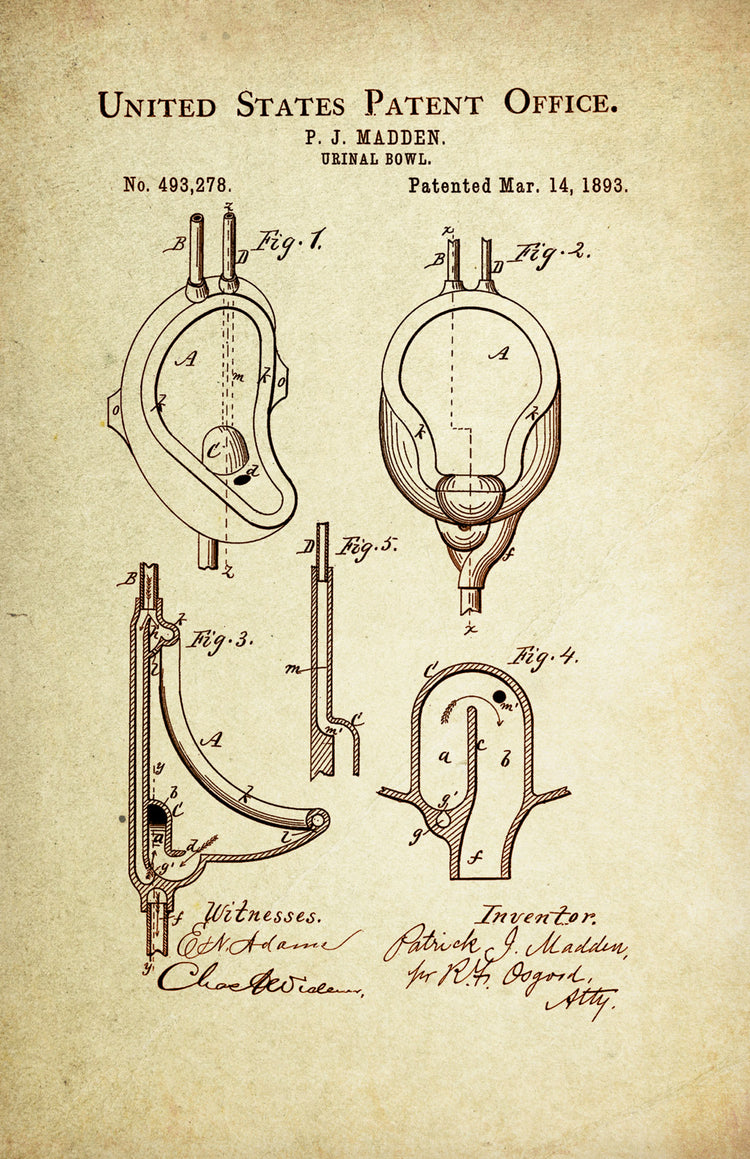 UNITED STATES PATENT OFFICE.
P. J. MADDEN.
URINAL BOWL.
No. 493,278. Patented Mar. 14, 1893.
Fig. 1.
z
B
D
A
k
m
k
o
o
C
d
z
Fig. 2.
x
B
D
A
k
k
f
x
Fig. 5.
D
m
m'
C
Fig. 3.
B
h
k
l
A
y
b
C
k
a
d
l
g'
f
y
Fig. 4.
C
m'
a
c
b
g'
g
f
Witnesses.
E. N. Adams
Chas
Inventor.
Patrick J. Madden,
pr R. F. Osgood,
Atty.